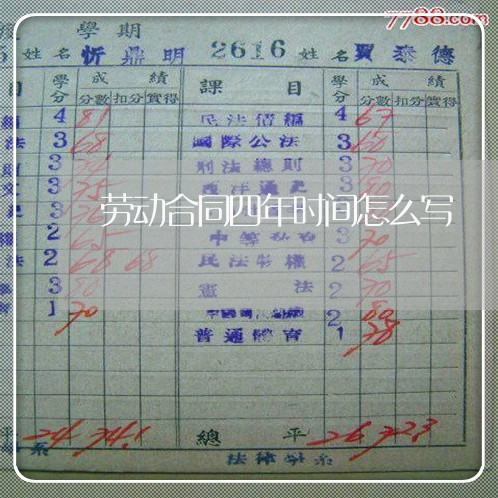 7788.com
學期
姓名 忻鼎明 2616 姓名 賈泰德
目 學分 成績 課目 學分 成績
分數 扣分 實得 分數 扣分 實得
4 81 民法債編 4 67
法 3 68 國際公法 3 60
3 刑法總則 3 70
3 75 西洋通史 3 80
3
劳动合同四年时间怎么写
2 65 3 70
法 2 68 68 民法物權 2 65
3 80 憲法 2 70
1 70 2 80
普通體育 1 78
24 74.1 總平 26 72.3
系 法律學系